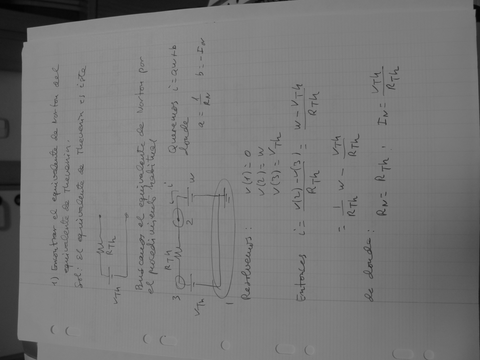 1) Encontrar el equivalente de Norton del
equivalente de Thevenin.
Sol: El equivalente de Thevenin es éste
RTh
VTh
Buscamos el equivalente de Norton por
el procedimiento habitual
3 RTh 2 i
VTh w
1
Queremos i = aw+b
donde
a = 1/RN b = -IN
Resolvemos: V(1) = 0
V(2) = w
V(3) = VTh
Entonces i = (V(2) - V(3))/RTh = (w - VTh)/RTh
= 1/RTh w - VTh/RTh
de donde: RN = RTh, IN = VTh/RTh